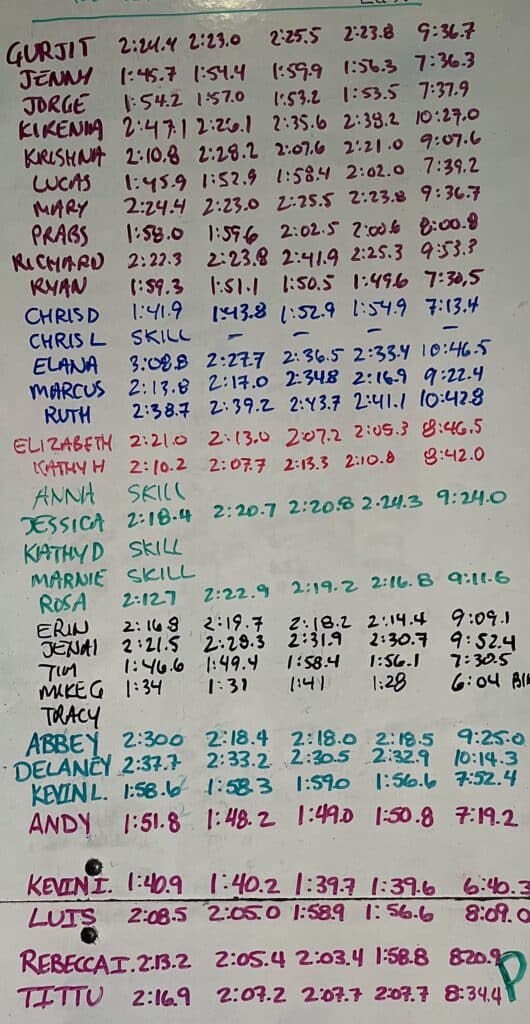 GURJIT 2:24.4 2:23.0 2:25.5 2:23.8 9:36.7
JENNY 1:45.7 1:54.4 1:59.9 1:56.3 7:36.3
JORGE 1:54.2 1:57.0 1:53.2 1:53.5 7:37.9
KIRENIA 2:47.1 2:26.1 2:35.6 2:38.2 10:27.0
KRISHNA 2:10.8 2:28.2 2:07.6 2:21.0 9:07.6
LUCAS 1:45.9 1:52.9 1:58.4 2:02.0 7:39.2
MARY 2:24.4 2:23.0 2:25.5 2:23.8 9:36.7
PRABS 1:58.0 1:59.6 2:02.5 2:00.6 8:00.8
RICHARD 2:22.3 2:23.8 2:41.9 2:25.3 9:53.3
RYAN 1:59.3 1:51.1 1:50.5 1:49.6 7:30.5
CHRIS D 1:41.9 1:43.8 1:52.9 1:54.9 7:13.4
CHRIS L SKILL - - - -
ELANA 3:08.8 2:27.7 2:36.5 2:33.4 10:46.5
MARCUS 2:13.8 2:17.0 2:34.8 2:16.9 9:22.4
RUTH 2:38.7 2:39.2 2:43.7 2:41.1 10:42.8
ELIZABETH 2:21.0 2:13.0 2:07.2 2:05.3 8:46.5
KATHY H 2:10.2 2:07.7 2:13.3 2:10.8 8:42.0
ANNA SKILL
JESSICA 2:18.4 2:20.7 2:20.8 2.24.3 9:24.0
KATHY D SKILL
MARNIE SKILL
ROSA 2:12.7 2:22.9 2:19.2 2:16.8 9:11.6
ERIN 2:16.8 2:19.7 2:18.2 2:14.4 9:09.1
JENAI 2:21.5 2:28.3 2:31.9 2:30.7 9:52.4
TIM 1:46.6 1:49.4 1:58.4 1:56.1 7:30.5
MIKE G 1:34 1:31 1:41 1:28 6:04
TRACY
ABBEY 2:30.0 2:18.4 2:18.0 2:18.5 9:25.0
DELANEY 2:37.7 2:33.2 2:30.5 2:32.9 10:14.3
KEVIN L. 1:58.6 1:58.3 1:59.0 1:56.6 7:52.4
ANDY 1:51.8 1:48.2 1:49.0 1:50.8 7:19.2
KEVIN I. 1:40.9 1:40.2 1:39.7 1:39.6 6:40.3
LUIS 2:08.5 2:05.0 1:58.9 1:56.6 8:09.0
REBECCA I. 2:13.2 2:05.4 2:03.4 1:58.8 8:20.9
TITTU 2:16.9 2:07.2 2:07.7 2:07.7 8:34.4
P